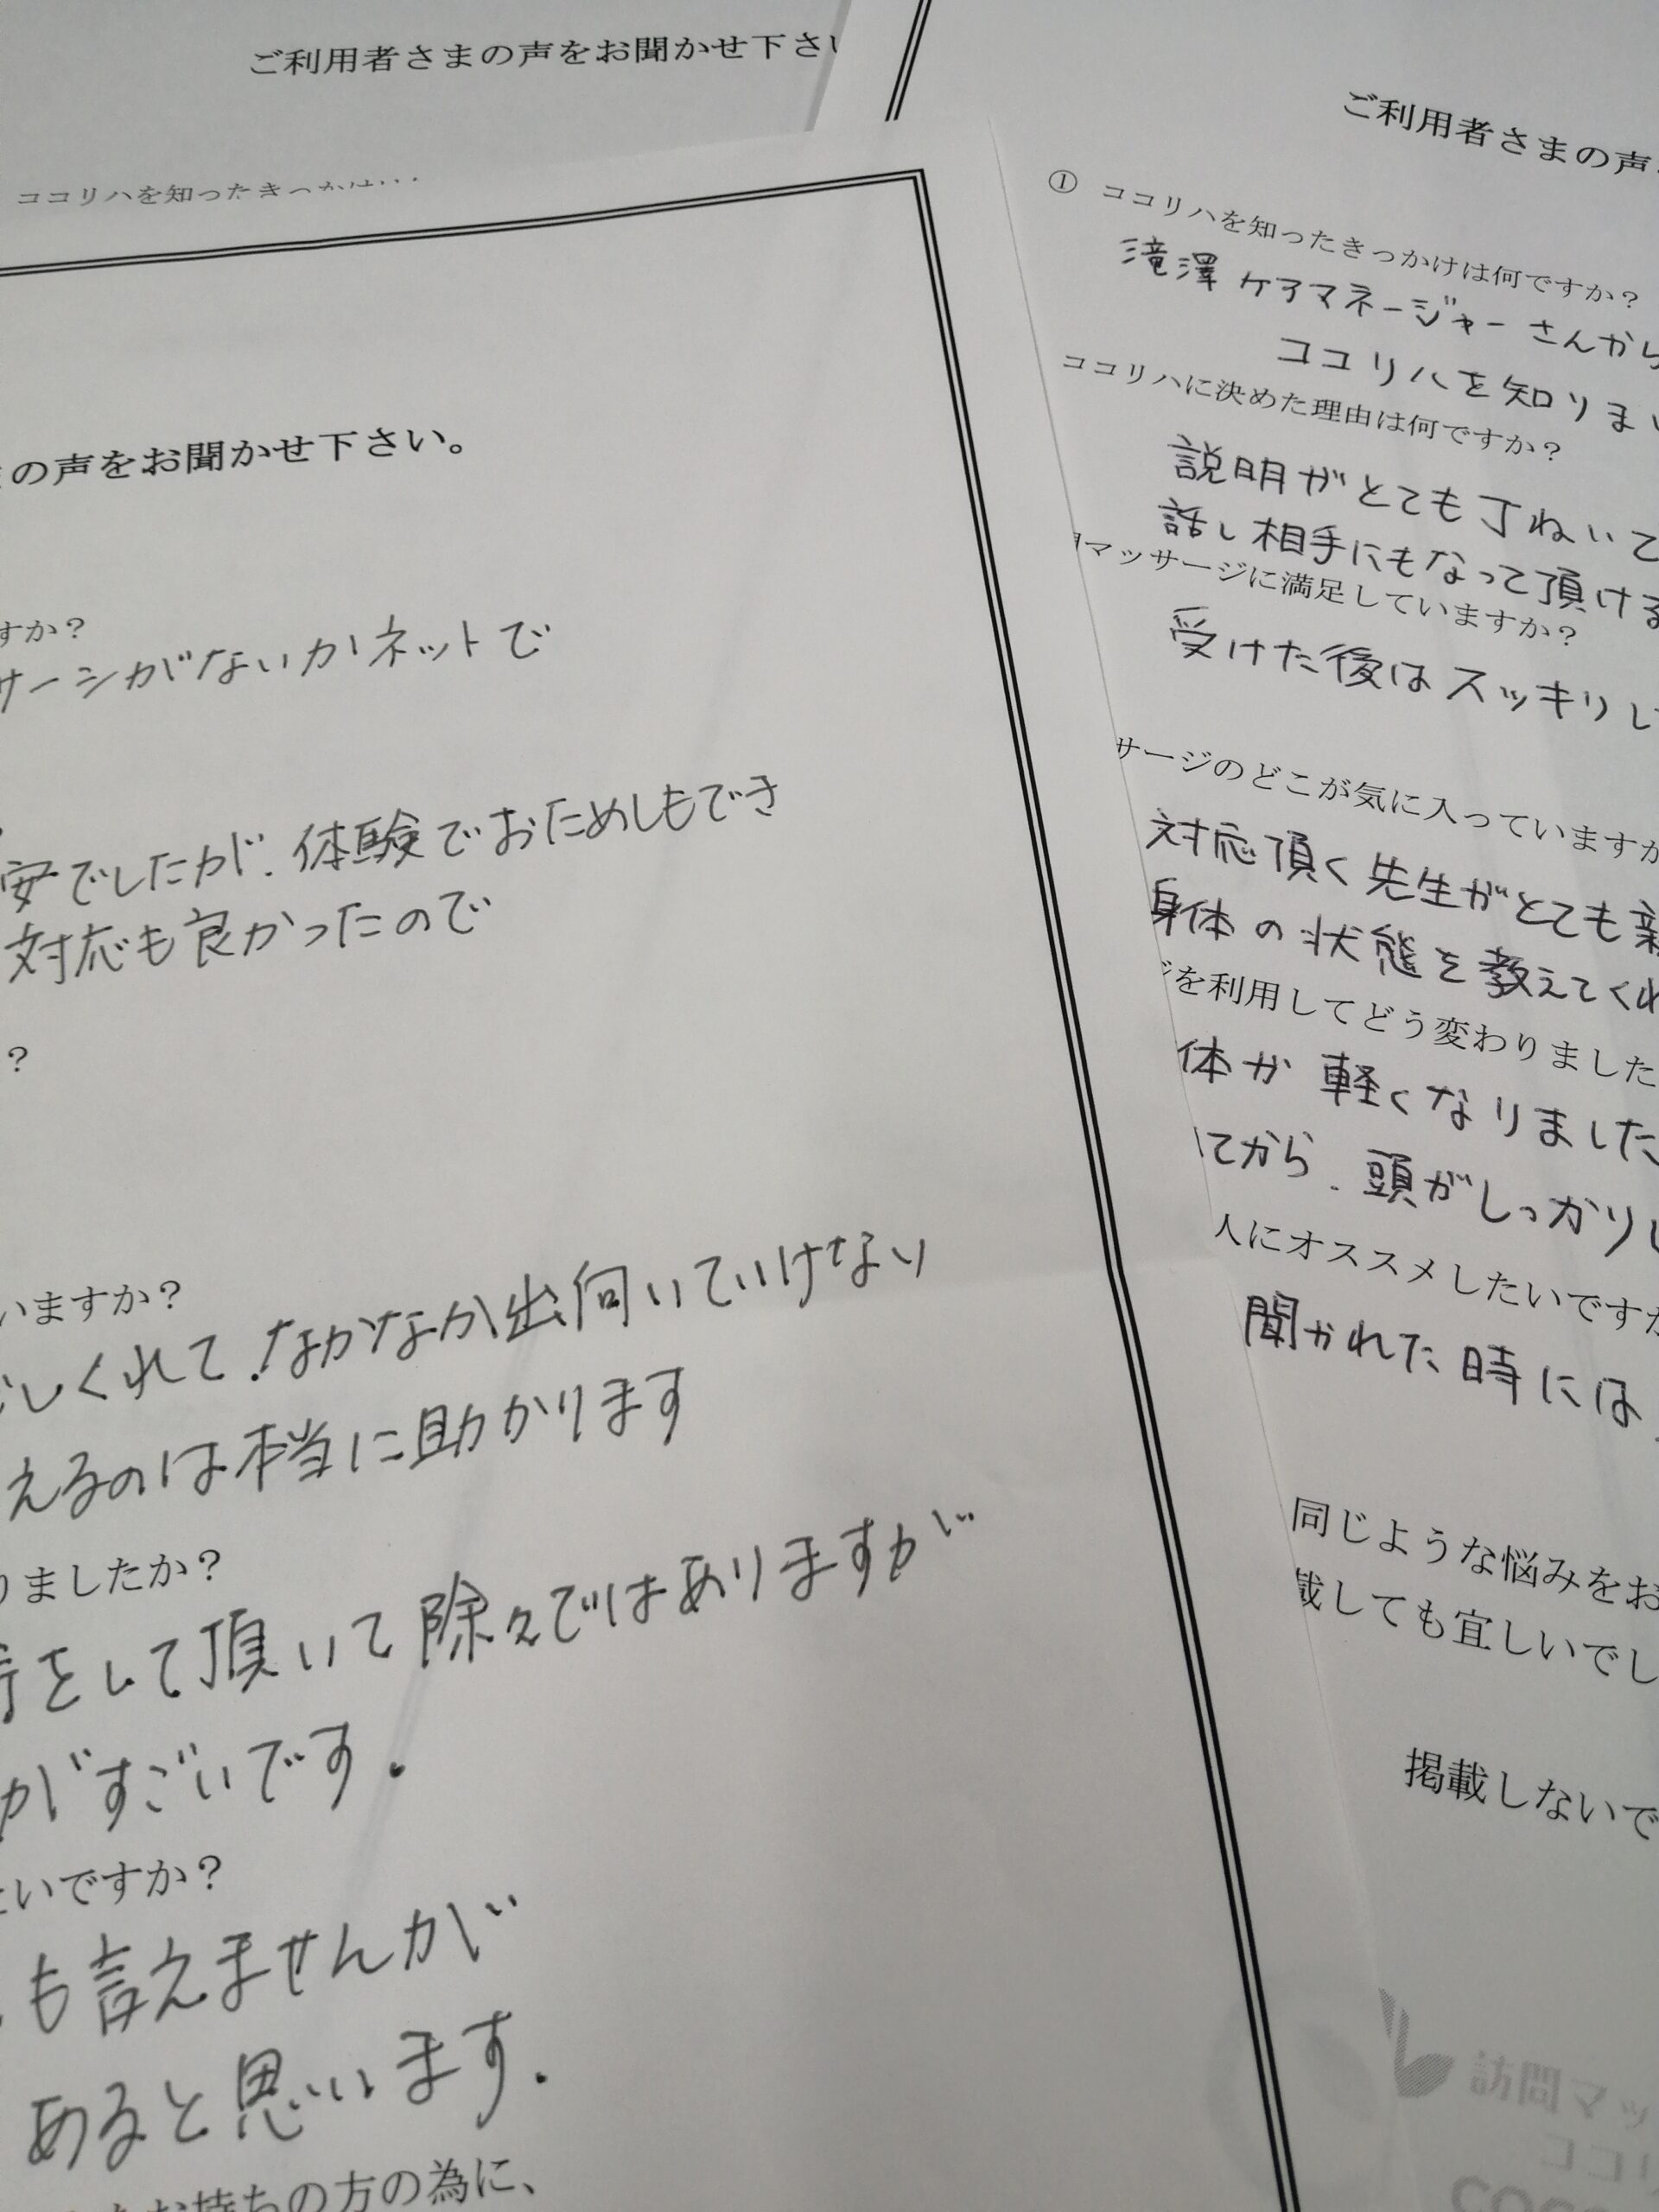 ご利用者さまの声をお聞かせ下さい
ココリハを知ったきっかけは
の声をお聞かせ下さい。
すか?
サージがないかネットで
安でしたが、体験でおためしもでき
対応も良かったので
?
いますか?
しくれて、なかなか出向いていけない
えるのは本当に助かります
りましたか?
をして頂いて除々ではありますが
がすごいです.
いですか?
も言えませんが
あると思います.
お持ちの方の為に、
ご利用者さまの声
① ココリハを知ったきっかけは何ですか?
滝澤ケアマネージャーさんから
ココリハを知りまし
ココリハに決めた理由は何ですか?
説明がとても丁ねいで
話し相手にもなって頂ける
マッサージに満足していますか?
受けた後はスッキリし
サージのどこが気に入っていますか
対応頂く先生がとても親
身体の状態を教えてくれ
を利用してどう変わりました
体が軽くなりました
てから、頭がしっかりし
人にオススメしたいですか
聞かれた時には
同じような悩みをお
載しても宜しいでし
掲載しないで
訪問マッ
ココリ
COC